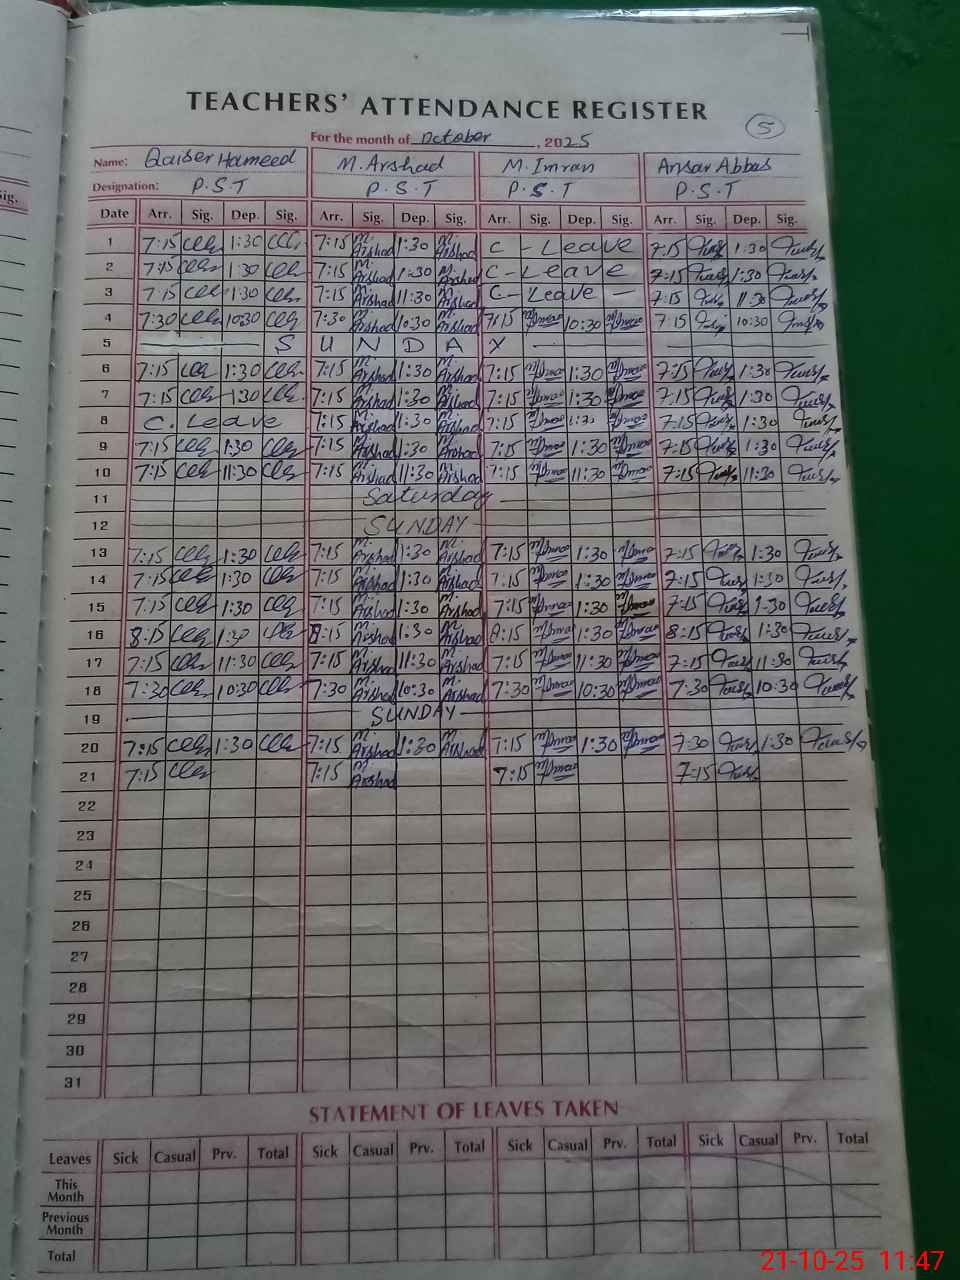 TEACHERS' ATTENDANCE REGISTER
For the month of October, 2025
5
Name: Qaiser Hameed M. Arshad M. Imran Ansar Abbas
Designation: P.S.T P.S.T P.S.T P.S.T
Date Arr. Sig. Dep. Sig. Arr. Sig. Dep. Sig. Arr. Sig. Dep. Sig. Arr. Sig. Dep. Sig.
1 7:15 1:30 7:15 M. Arshad 1:30 M. Arshad C - Leave 7:15 1:30
2 7:15 1:30 7:15 M. Arshad 1:30 M. Arshad C - Leave 7:15 1:30
3 7:15 1:30 7:15 M. Arshad 11:30 M. Arshad C - Leave - 7:15 11:30
4 7:30 10:30 7:30 M. Arshad 10:30 M. Arshad 7:15 10:30 7:15 10:30
5 S U N D A Y
6 7:15 1:30 7:15 M. Arshad 1:30 M. Arshad 7:15 1:30 7:15 1:30
7 7:15 1:30 7:15 M. Arshad 1:30 M. Arshad 7:15 1:30 7:15 1:30
8 C. Leave 7:15 M. Arshad 1:30 M. Arshad 7:15 1:30 7:15 1:30
9 7:15 1:30 7:15 M. Arshad 1:30 M. Arshad 7:15 1:30 7:15 1:30
10 7:15 11:30 7:15 M. Arshad 11:30 M. Arshad 7:15 11:30 7:15 11:30
11 Saturday
12 SUNDAY
13 7:15 1:30 7:15 M. Arshad 1:30 M. Arshad 7:15 1:30 7:15 1:30
14 7:15 1:30 7:15 M. Arshad 1:30 M. Arshad 7:15 1:30 7:15 1:30
15 7:15 1:30 7:15 M. Arshad 1:30 M. Arshad 7:15 1:30 7:15 1:30
16 8:15 1:30 8:15 M. Arshad 1:30 M. Arshad 8:15 1:30 8:15 1:30
17 7:15 11:30 7:15 M. Arshad 11:30 M. Arshad 7:15 11:30 7:15 11:30
18 7:30 10:30 7:30 M. Arshad 10:30 M. Arshad 7:30 10:30 7:30 10:30
19 SUNDAY
20 7:15 1:30 7:15 M. Arshad 1:30 M. Arshad 7:15 1:30 7:30 1:30
21 7:15 7:15 M. Arshad 7:15 7:15
22
23
24
25
26
27
28
29
30
31
STATEMENT OF LEAVES TAKEN
Leaves Sick Casual Prv. Total Sick Casual Prv. Total Sick Casual Prv. Total Sick Casual Prv. Total
This Month
Previous Month
Total
21-10-25 11:47